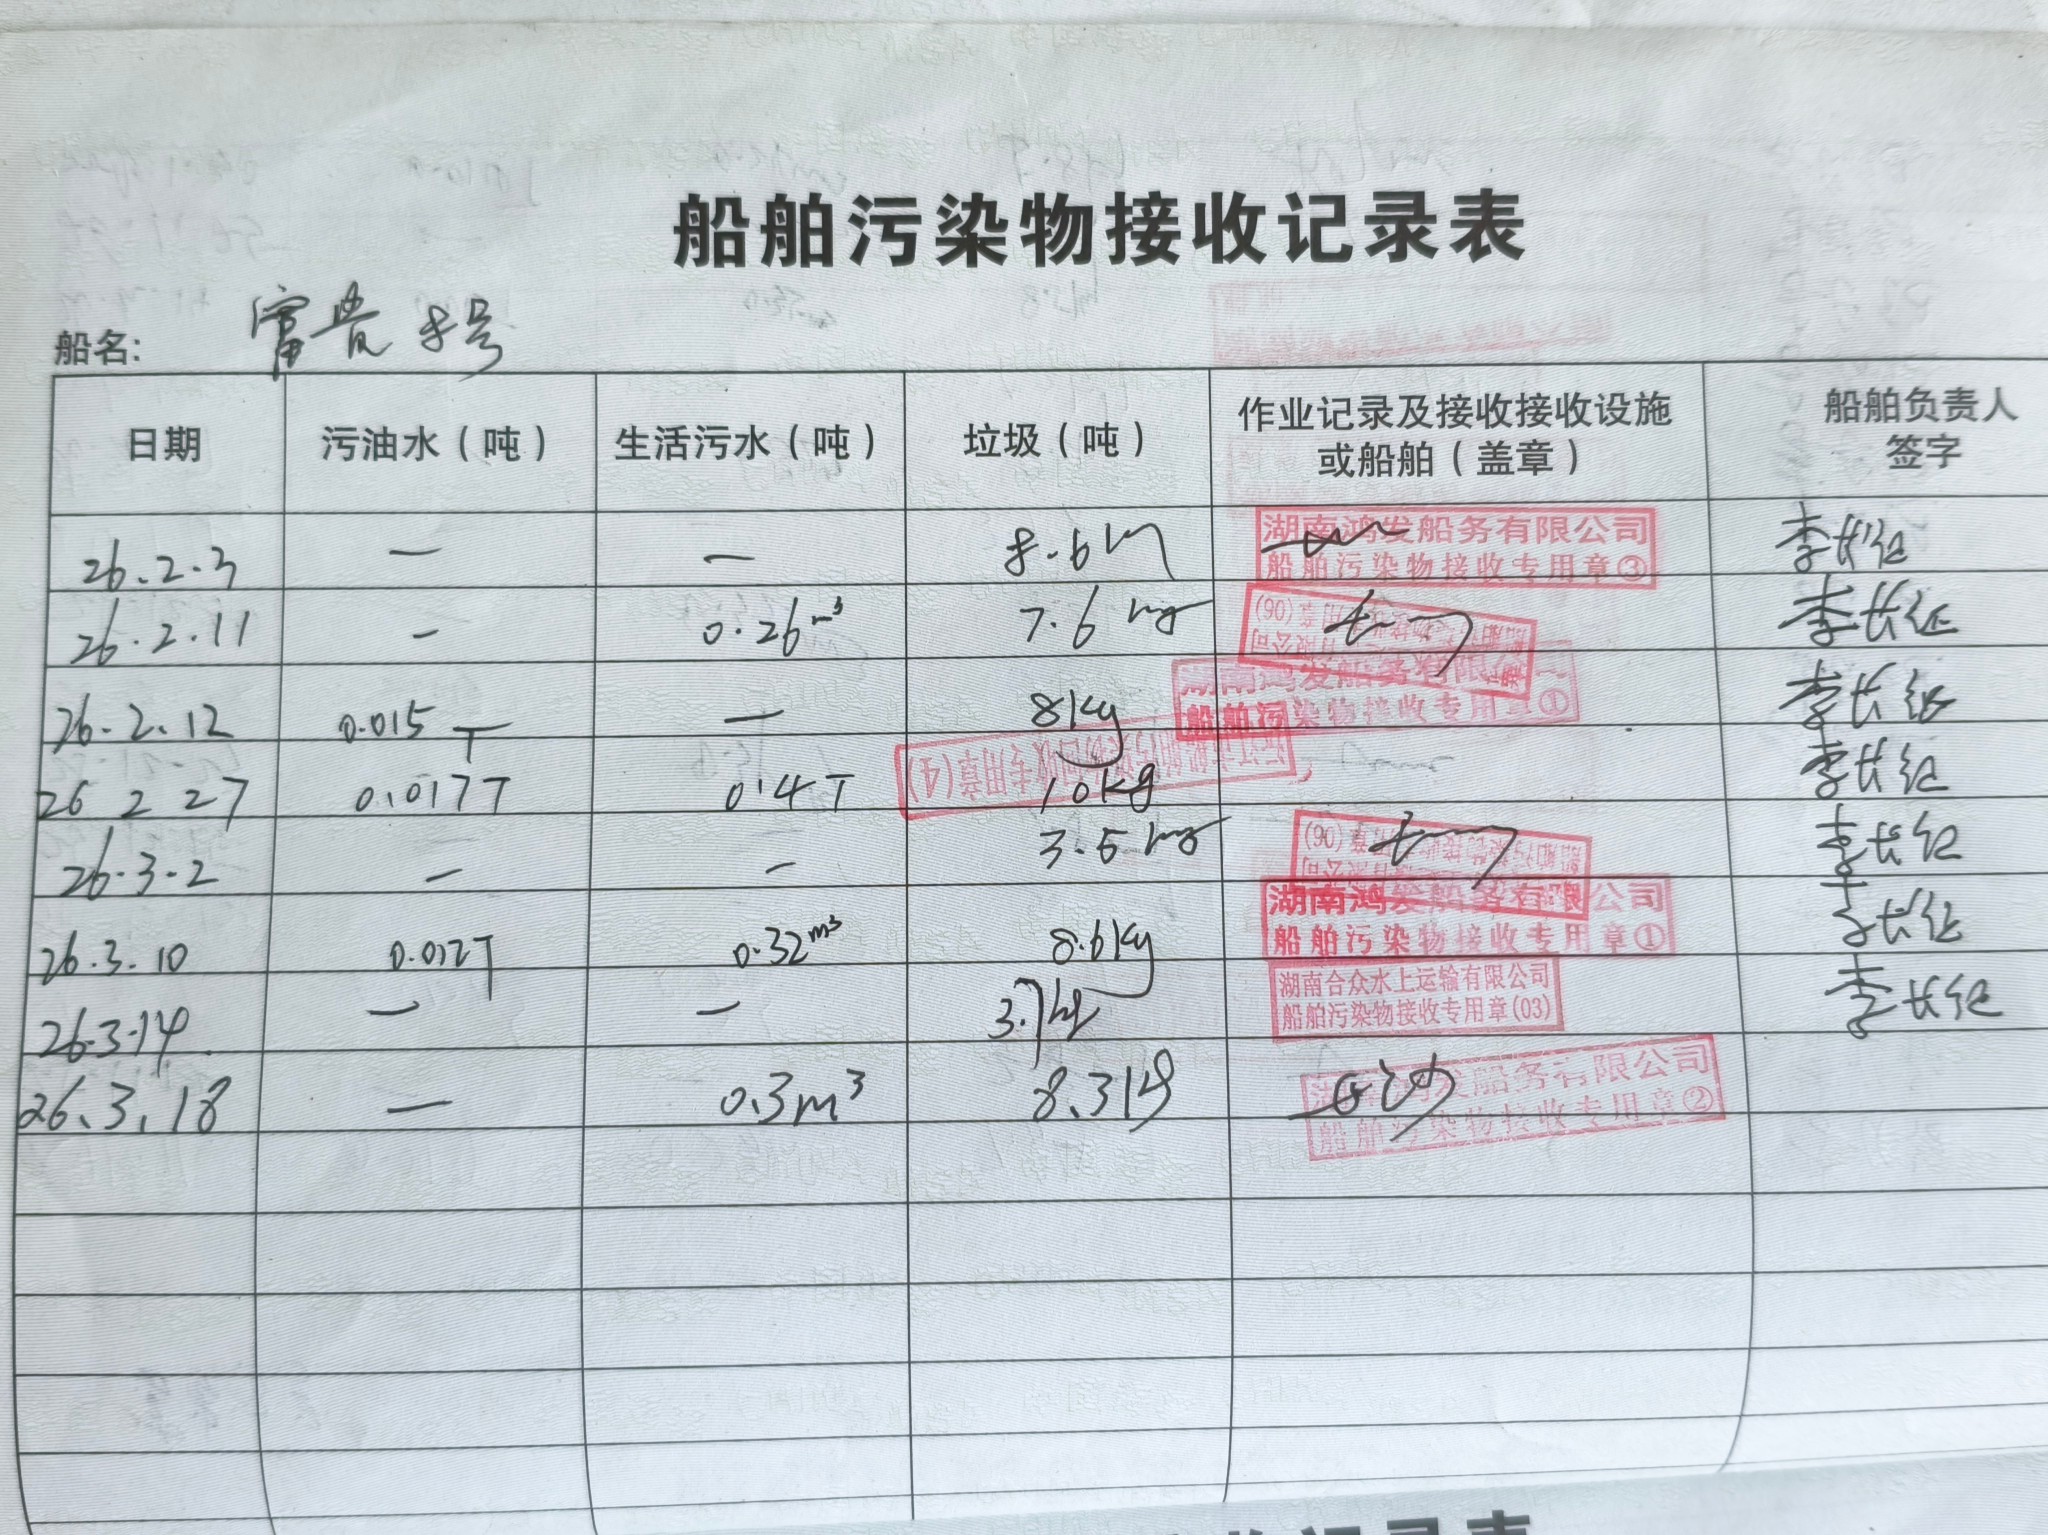 船舶污染物接收记录表
船名: 富贵8号
日期 污油水（吨） 生活污水（吨） 垃圾（吨） 作业记录及接收接收设施或船舶（盖章） 船舶负责人签字
26.2.3 — — 8.6 湖南鸿发船务有限公司 船舶污染物接收专用章③ 李长征
26.2.11 — 0.26m³ 7.6kg (06) 李长征
26.2.12 0.015T — 8kg 湖南鸿发船务有限公司 船舶污染物接收专用章① 李长征
26 2 27 0.017T 0.4T 10kg 沅江市船舶污染物回收专用章(4) 李长征
26.3.2 — — 3.5kg (06) 李长征
26.3.10 0.012T 0.32m³ 8.6kg 湖南鸿发船务有限公司 船舶污染物接收专用章① 李长征
26.3.14 — — 3.7kg 湖南合众水上运输有限公司 船舶污染物接收专用章(03) 李长征
26.3.18 — 0.3m³ 8.3kg 湖南鸿发船务有限公司 船舶污染物接收专用章②